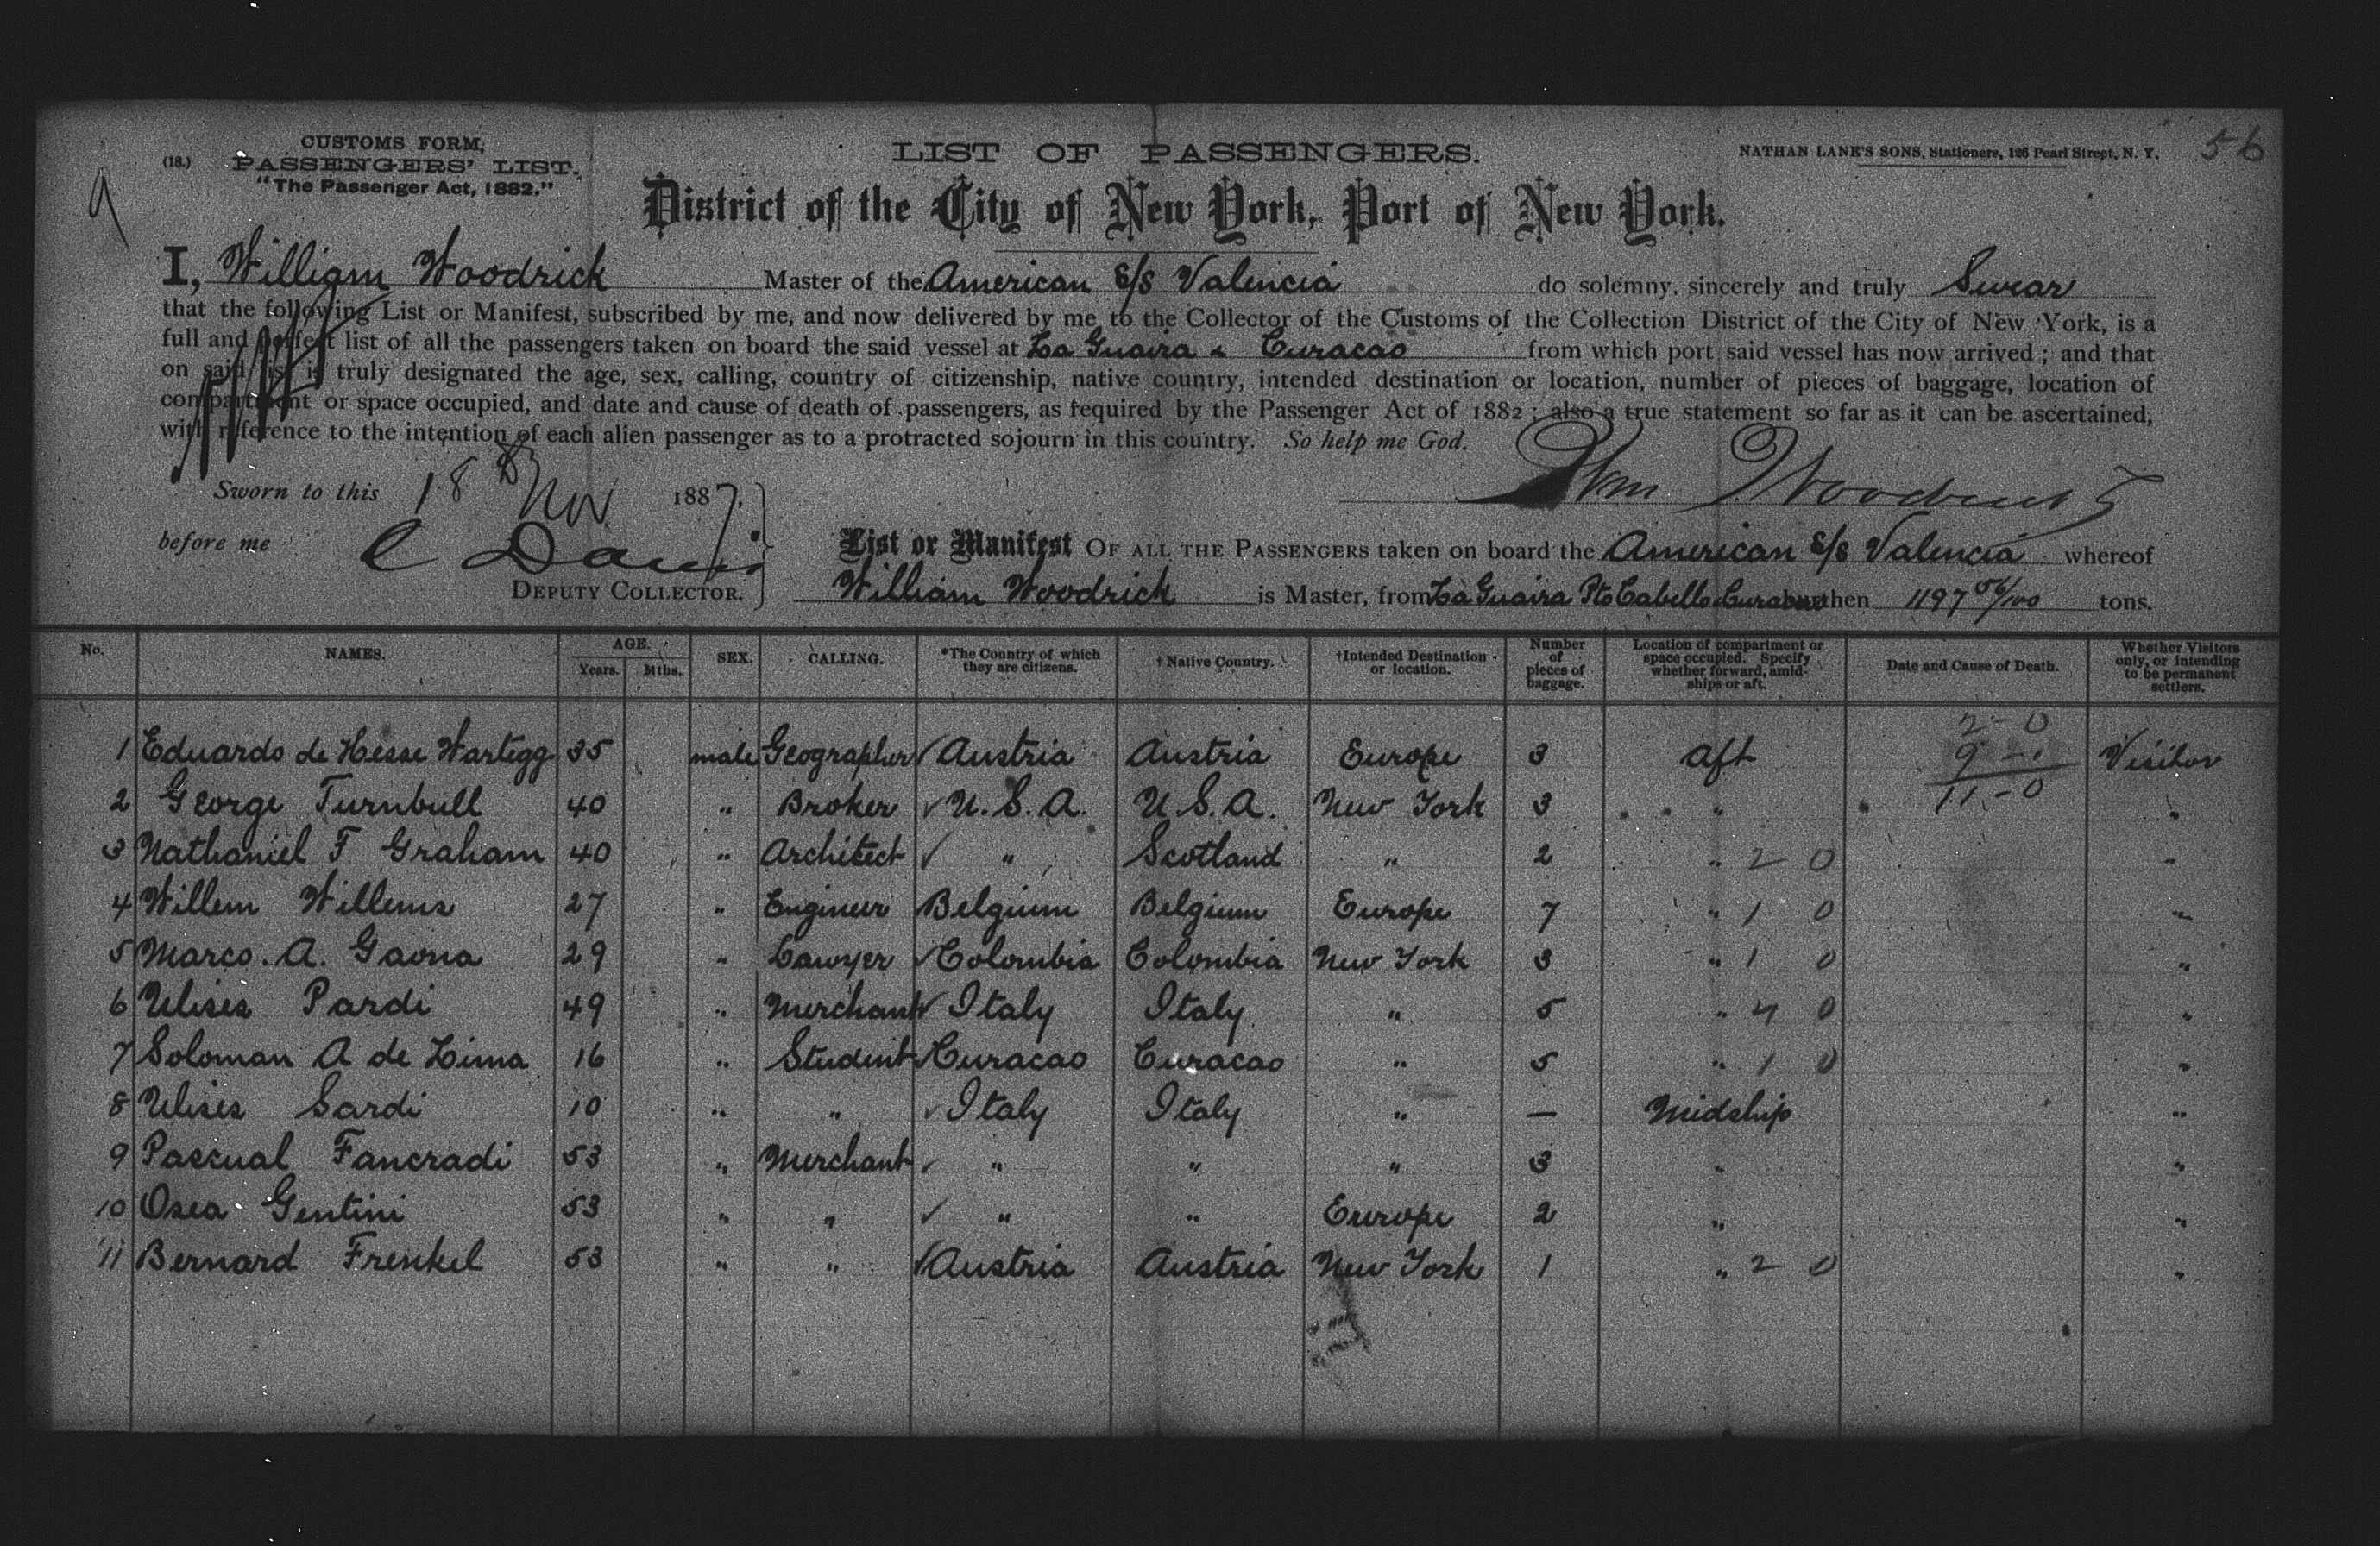 CUSTOMS FORM,
(18.) PASSENGERS' LIST.
"The Passenger Act, 1882."
LIST OF PASSENGERS.
NATHAN LANE'S SONS, Stationers, 126 Pearl Street, N. Y.
56
9
District of the City of New York, Port of New York.
I, William Woodrick Master of the American S/S Valencia do solemny, sincerely and truly Swear
that the following List or Manifest, subscribed by me, and now delivered by me to the Collector of the Customs of the Collection District of the City of New York, is a
full and perfect list of all the passengers taken on board the said vessel at La Guaira & Curacao from which port said vessel has now arrived; and that
on said list is truly designated the age, sex, calling, country of citizenship, native country, intended destination or location, number of pieces of baggage, location of
compartment or space occupied, and date and cause of death of passengers, as required by the Passenger Act of 1882; also a true statement so far as it can be ascertained,
with reference to the intention of each alien passenger as to a protracted sojourn in this country. So help me God.
Sworn to this 18 Nov 1887.
Wm Woodrick
before me C Davis
DEPUTY COLLECTOR.
List or Manifest OF ALL THE PASSENGERS taken on board the American S/S Valencia whereof
William Woodrick is Master, from La Guaira Pto Cabello & Curacao then 1197 56/100 tons.
No. NAMES. AGE. Years. Mths. SEX. CALLING. *The Country of which they are citizens. †Native Country. †Intended Destination or location. Number of pieces of baggage. Location of compartment or space occupied. Specify whether forward, amidships or aft. Date and Cause of Death. Whether Visitors only, or intending to be permanent settlers.
2-0
1 Eduardo de Hesse Wartegg 35 male Geographer Austria Austria Europe 3 Aft 9 - Visitor
2 George Turnbull 40 " Broker U.S.A. U.S.A. New York 3 " 11-0 "
3 Nathaniel F Graham 40 " Architect " Scotland " 2 " 2 0 "
4 Willem Willems 27 " Engineer Belgium Belgium Europe 7 " 1 0 "
5 Marco. A. Gaona 29 " Lawyer Colombia Colombia New York 3 " 1 0 "
6 Ulises Pardi 49 " Merchant Italy Italy " 5 " 4 0 "
7 Soloman A de Lima 16 " Student Curacao Curacao " 5 " 1 0 "
8 Ulises Sardi 10 " " Italy Italy " — Midship "
9 Pascual Fancradi 53 " Merchant " " " 3 " "
10 Osea Gentini 53 " " " " Europe 2 " "
11 Bernard Frenkel 53 " " Austria Austria New York 1 " 2 0 "